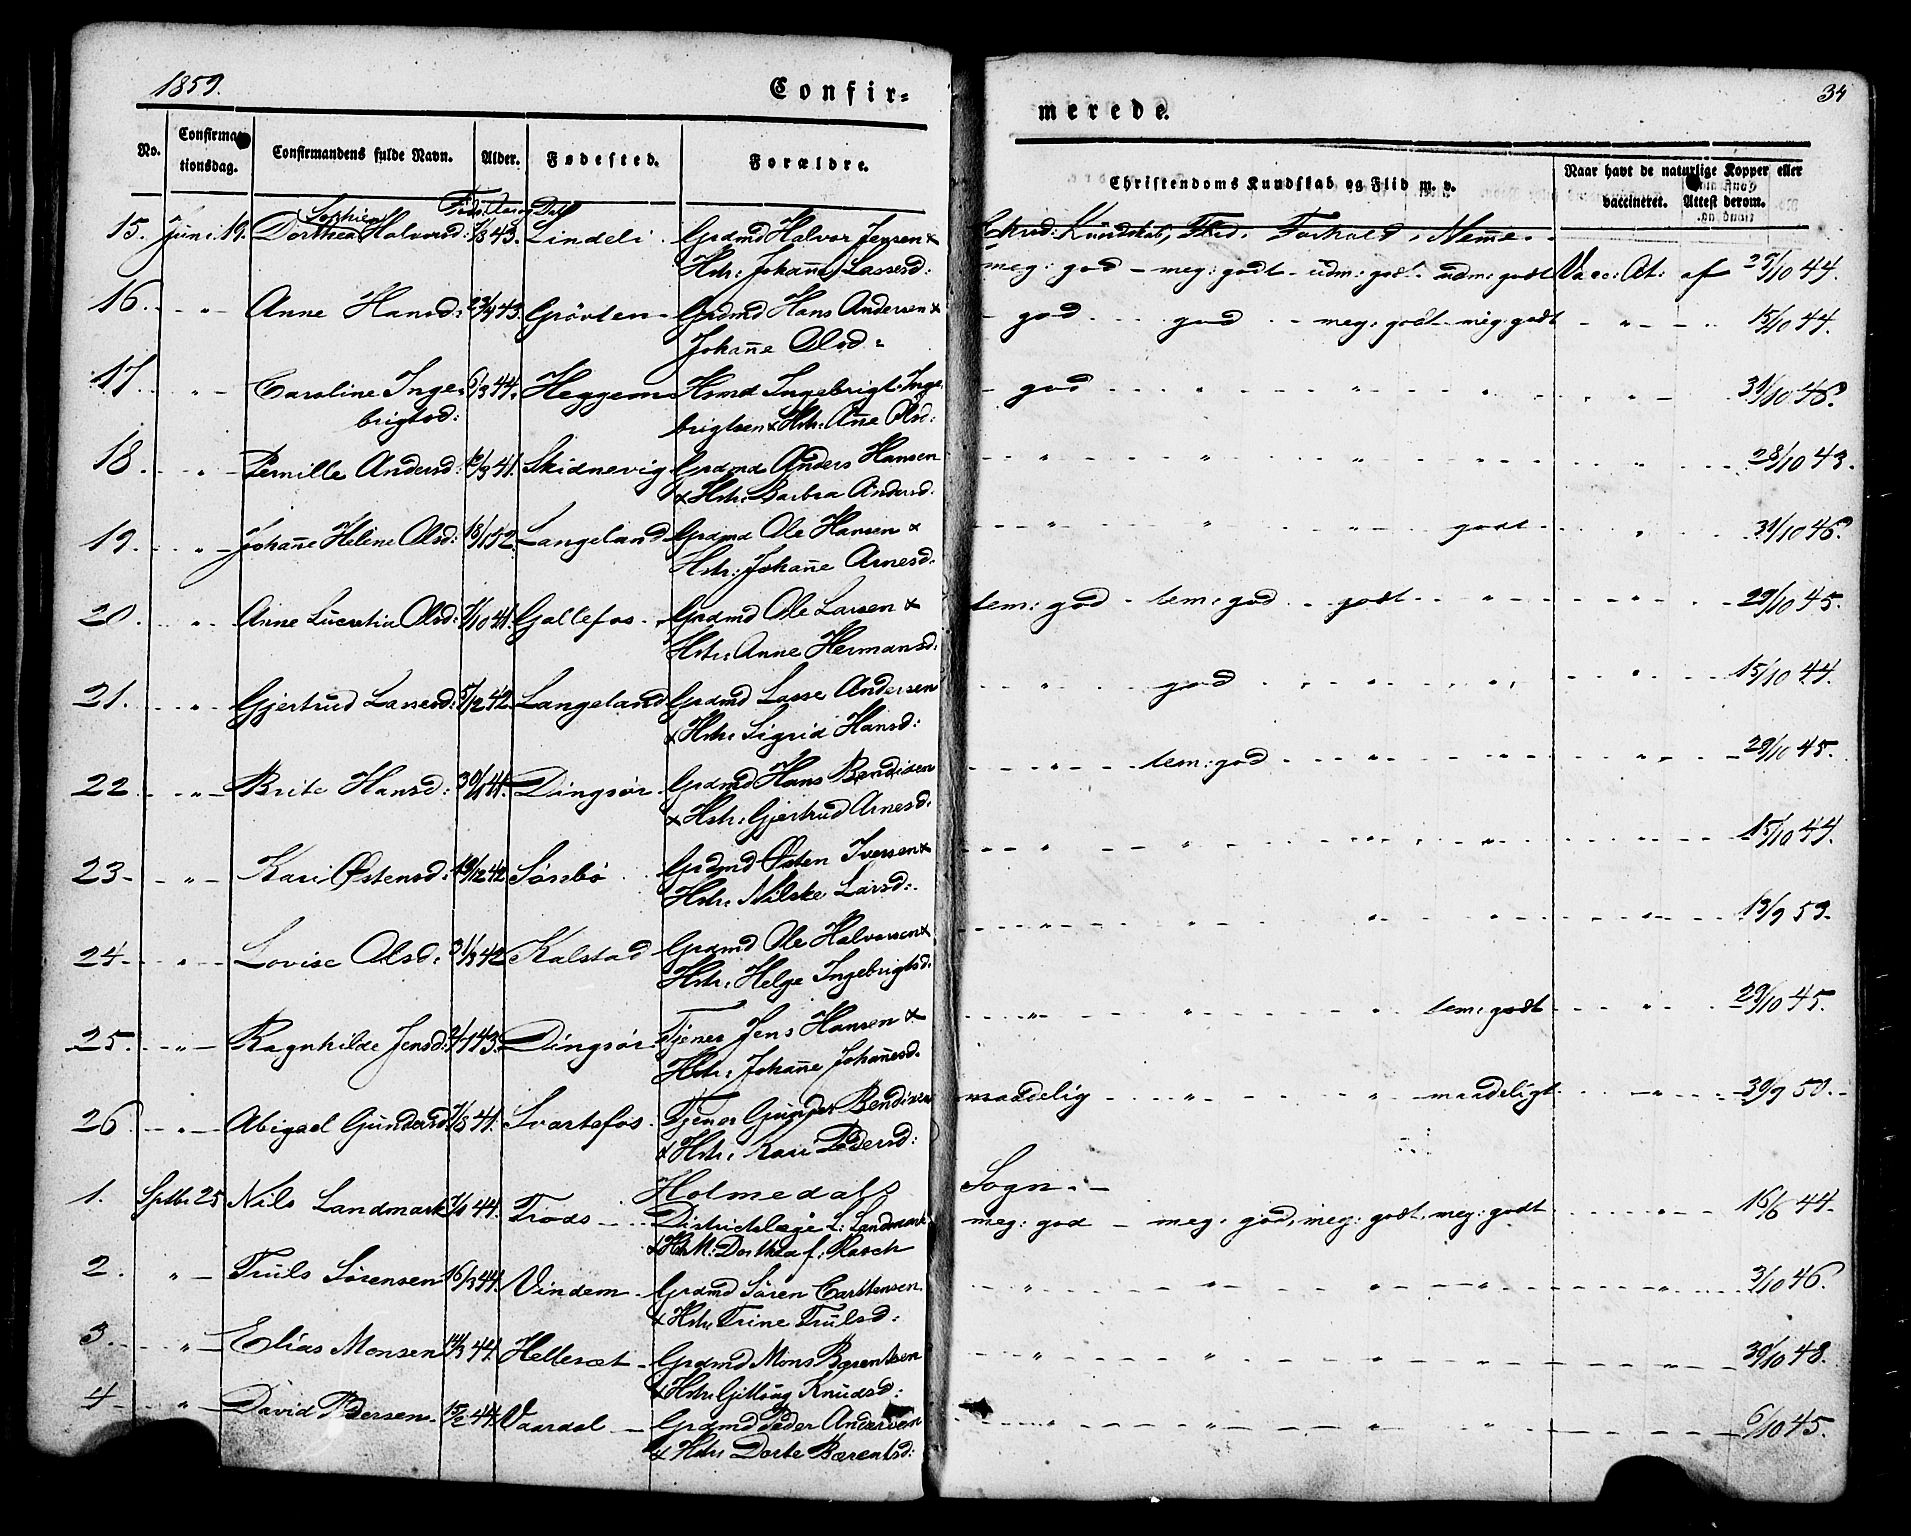 1859.
Confir=
merede.
34
No.
Confirma-
tionsdag.
Confirmandens fulde Navn.
Alder.
Fødested.
Forældre.
Christendoms Kundskab og Flid m. v.
Naar havt de naturlige Kopper eller
vaccineret. Attest derom.
Føds. Aar og Dat
Chrd: Kundskab, Flid, Forhold, Neme.
15. Juni 19. Dorthea Sophie Halvorsd: 43. Lindeli Grdmd Halvor Jensen &
Hstr: Johanne Lassesd: meg: god - meg: godt - udm: godt - udm: godt Vacc: At: af 29/10 44.
16. " Anne Hansd: 43. Grövlen Grdmd Hans Andersen & - god - god - meg: godt - meg: godt " 15/10 44.
Johanne Olsd:
17. " Caroline Inge- 6/3 44. Heggem Hsmd Ingebrigt Inge- - god " " " " 31/10 46.
brigtsd: brigtsen & Hstr: Anne Olsd:
18. " Pernille Andersd: 41. Skidnevig Grdmd Anders Hansen " " " " " 28/10 43.
& Hstr: Barbra Andersd.
19. " Johanne Helene Olsd: 18/1 52. Langeland Grdmd Ole Hansen & " " " godt " 31/10 46.
Hstr: Johanne Arnesd.
20. " Anne Lucretia Olsd: 7/10 41. Gallefos Grdmd Ole Larsen & tem: god - tem: god - godt " " 29/10 45.
Hstr: Anne Hermansd:
21. " Gjertrud Lassesd: 5/12 42. Langeland Grdmd Lasse Andersen " god " " " 15/10 44.
& Hstr: Sigrid Hansd:
22. " Brite Hansd: 41. Dingsör Grdmd Hans Bendixen " tem: god " " " 29/10 45.
& Hstr: Gjertrud Arnesd:
23. " Kari Østensd: 19/12 42. Sörebö Grdmd Østen Iversen & " " " " 15/10 44.
Hstr: Nilske Larsd:
24. " Lovise Olsd: 31/3 42. Kalstad Grdmd Ole Halvorsen & " " " " " 13/9 59.
Hstr: Helge Ingebrigtsd:
25. " Ragnhilde Jensd: 43. Dingsör Tjener Jens Hansen & " " " tem: godt " 29/10 45.
Hstr: Johanne Johannesd.
26. " Abigael Gundersd 41. Svartefos Tjener Gunder Bendixen maadelig " " maadeligt " 30/9 50.
& Hstr: Kari Pedersd:
Holmedals Sogn.
1. Sptbr 25 Nils Landmark 44. Tröds Districtslæge L: Landmark meg: god - meg: god, meg: godt, meg: godt " 16/6 44.
& H M: Dorthea f: Rasch
2. " Truls Sørensen 16/3 44. Vindem Grdmd Søren Carstensen " " " " " 3/10 46.
& Hstr: Trine Trulsd:
3. " Elias Monsen 14/3 44. Hellesæt Grdmd Mons Bærentsen " " " " " 30/10 48.
& Hstr: Gitlöug Knudsd:
4 " David Pedersen 15/2 44. Vaardal Grdmd Peder Andersen " " " " " 6/10 45.
& Hstr Dorte Bærentsd: